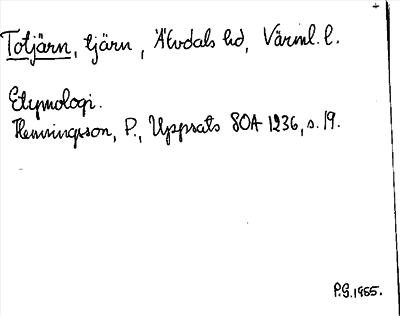 Totjärn, tjärn, Älvdals hd, Värml. l.
Etymologi.
Henningsson, P., Uppsats SOA 1236, s. 19.
P.G. 1965.